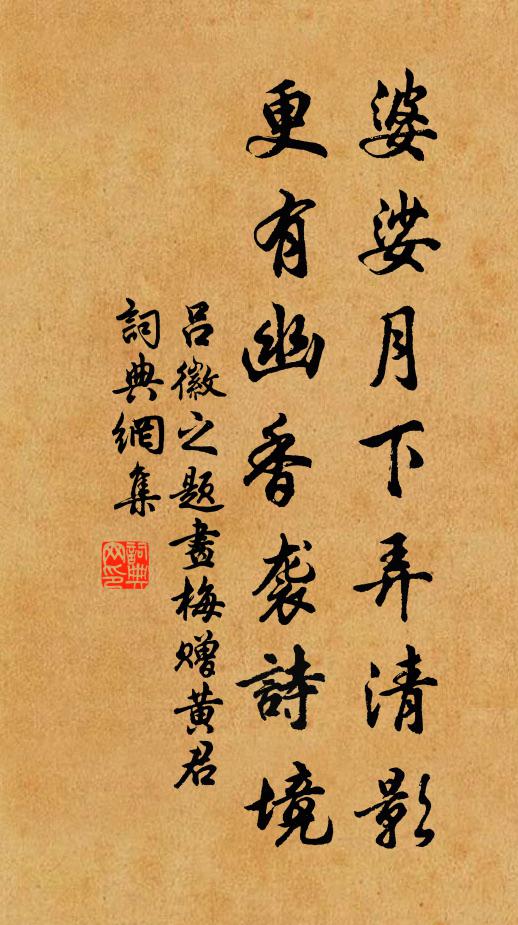 婆娑月下弄清影
更有幽香袭詩境
吕徽之题畫梅赠黄君
詞典網集
詞典網印